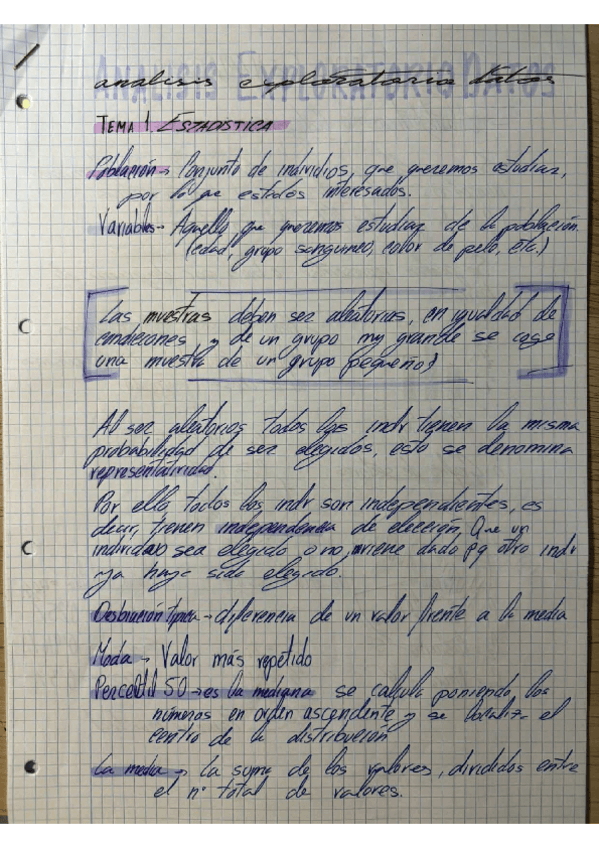 ANALISIS EXPLORATORIO DATOS
analisis exploratorio datos
TEMA 1. ESTADISTICA
Población → Conjunto de individios, que queremos estudiar,
por lo que estados interesados.
Variables → Aquello que queremos estudiar de la población.
(edad, grupo sanguineo, color de pelo, etc.)
Las muestras deben ser aleatorias, en igualdad de
condiciones y de un grupo my grande se coge
una muestra de un grupo pequeño)
Al ser aleatorios todos los indv tienen la misma
probabilidad de ser elegidos, esto se denomina
representatividad.
Por ello todos los indv son independientes, es
decir, tienen independencia de elección. Que un
individuo sea elegido o no, viene dado pq otro indv
ya haya sido elegido.
Desbiación típica → diferencia de un valor frente a la media
Moda → Valor más repetido
Percentil 50 → es la mediana se calcula poniendo los
números en orden ascendente y se localiza el
centro de la distribución
La media → La suma de los valores, divididos entre
el nº total de valores.